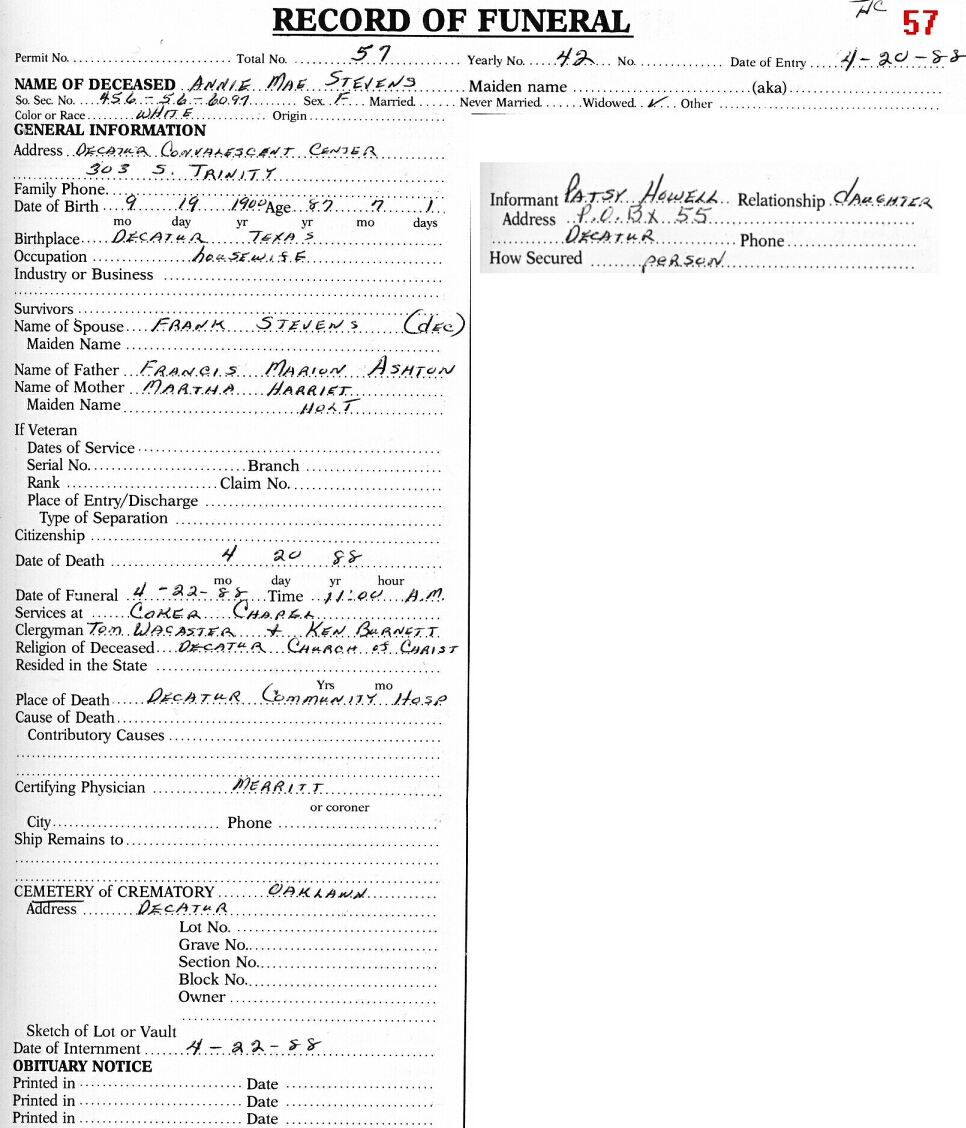 HC 57
RECORD OF FUNERAL
Permit No. Total No. 57 Yearly No. 42 No. Date of Entry 4-20-88
NAME OF DECEASED ANNIE MAE STEVENS Maiden name (aka)
So. Sec. No. 456-56-6097 Sex F Married Never Married Widowed ✓ Other
Color or Race WHITE Origin
GENERAL INFORMATION
Address DECATUR CONVALESCENT CENTER
303 S. TRINITY
Family Phone
Date of Birth 9 19 1900 Age 87 7 1
mo day yr yr mo days
Birthplace DECATUR TEXAS
Occupation housewife
Industry or Business
Survivors
Name of Spouse FRANK STEVENS (dec)
Maiden Name
Name of Father FRANCIS MARION ASHTON
Name of Mother MARTHA HARRIET
Maiden Name HOLT
If Veteran
Dates of Service
Serial No. Branch
Rank Claim No.
Place of Entry/Discharge
Type of Separation
Citizenship
Date of Death 4 20 88
mo day yr hour
Date of Funeral 4-22-88 Time 11:00 A.M.
Services at COKER CHAPEL
Clergyman TOM WACASTER + KEN BURNETT
Religion of Deceased DECATUR CHURCH of CHRIST
Resided in the State
Yrs mo
Place of Death DECATUR COMMUNITY HOSP
Cause of Death
Contributory Causes
Certifying Physician MERRITT
or coroner
City Phone
Ship Remains to
CEMETERY of CREMATORY OAKLAWN
Address DECATUR
Lot No.
Grave No.
Section No.
Block No.
Owner
Sketch of Lot or Vault
Date of Internment 4-22-88
OBITUARY NOTICE
Printed in Date
Printed in Date
Printed in Date
Informant PATSY HOWELL Relationship dAUGHTER
Address P.O. BX 55
DECATUR Phone
How Secured PERSON